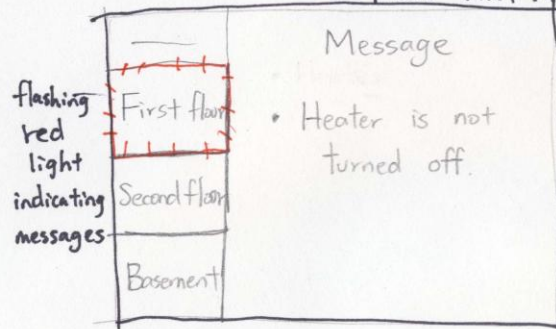 Message
flashing
red
light
indicating
messages
First floor
Second floor
Basement
• Heater is not
turned off.